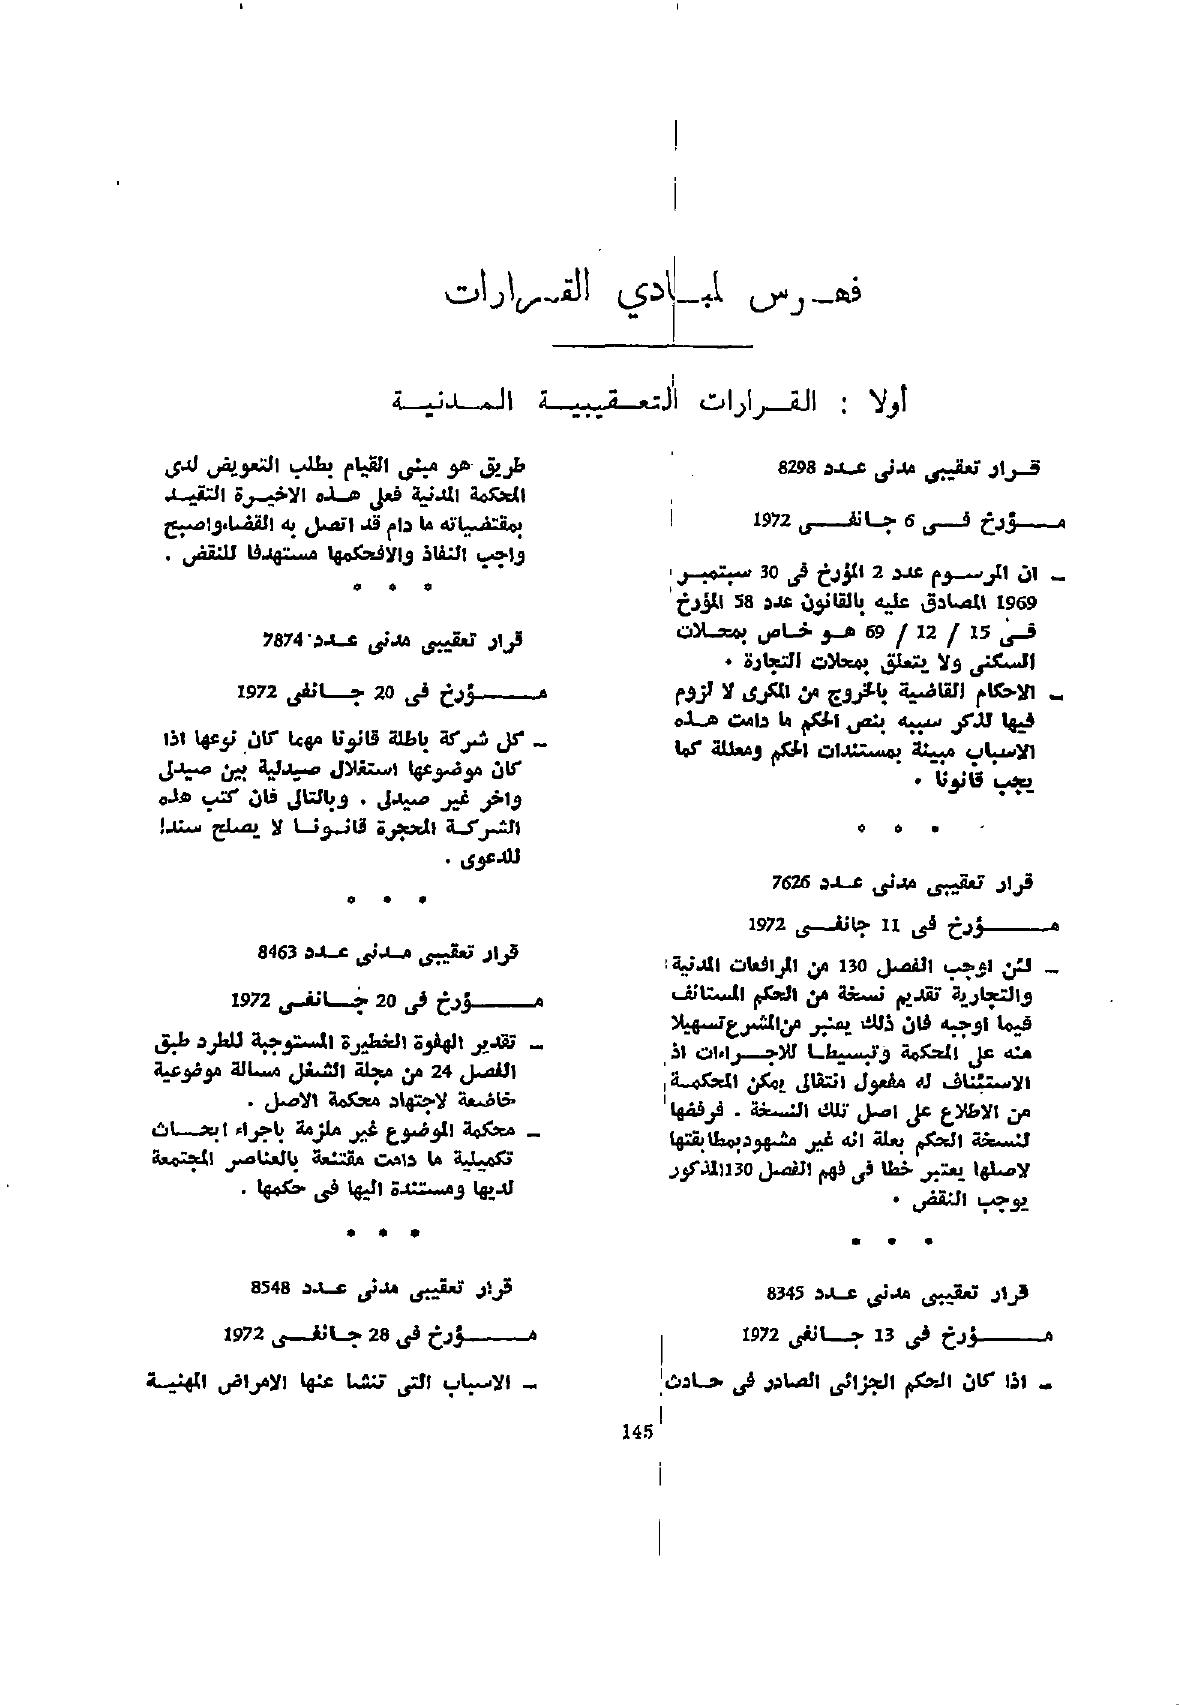 فهرس لمبادي القرارات
أولا : القرارات التعقيبية المدنية
قرار تعقيبي مدني عدد 8298
مؤرخ في 6 جانفي 1972
_ ان المرسوم عدد 2 المؤرخ في 30 سبتمبر
1969 المصادق عليه بالقانون عدد 58 المؤرخ
في 15 / 12 / 69 هو خاص بمحلات
السكنى ولا يتعلق بمحلات التجارة .
_ الاحكام القاضية بالخروج من المكرى لا لزوم
فيها لذكر سببه بنص الحكم ما دامت هذه
الاسباب مبينة بمستندات الحكم ومعللة كما
يجب قانونا .
* * *
قرار تعقيبي مدني عدد 7626
مؤرخ في 11 جانفي 1972
_ لئن اوجب الفصل 130 من المرافعات المدنية
والتجارية تقديم نسخة من الحكم المستانف
فيما اوجبه فان ذلك يعتبر من المشرع تسهيلا
منه على المحكمة وتبسيطا للاجراءات اذ
الاستئناف له مفعول انتقالي يمكن المحكمة
من الاطلاع على اصل تلك النسخة . فرفضها
لنسخة الحكم بعلة انه غير مشهود بمطابقتها
لاصلها يعتبر خطا في فهم الفصل 130 المذكور
يوجب النقض .
* * *
قرار تعقيبي مدني عدد 8345
مؤرخ في 13 جانفي 1972
_ اذا كان الحكم الجزائي الصادر في حادث
طريق هو مبنى القيام بطلب التعويض لدى
المحكمة المدنية فعلى هذه الاخيرة التقيد
بمقتضياته ما دام قد اتصل به القضاء واصبح
واجب النفاذ والا فحكمها مستهدفا للنقض .
* * *
قرار تعقيبي مدني عدد 7874
مؤرخ في 20 جانفي 1972
_ كل شركة باطلة قانونا مهما كان نوعها اذا
كان موضوعها استغلال صيدلية بين صيدلي
واخر غير صيدلي . وبالتالي فان كتب هذه
الشركة المحجرة قانونا لا يصلح سندا
للدعوى .
* * *
قرار تعقيبي مدني عدد 8463
مؤرخ في 20 جانفي 1972
_ تقدير الهفوة الخطيرة المستوجبة للطرد طبق
الفصل 24 من مجلة الشغل مسالة موضوعية
خاضعة لاجتهاد محكمة الاصل .
_ محكمة الموضوع غير ملزمة باجراء ابحاث
تكميلية ما دامت مقتنعة بالعناصر المجتمعة
لديها ومستندة اليها في حكمها .
* * *
قرار تعقيبي مدني عدد 8548
مؤرخ في 28 جانفي 1972
_ الاسباب التي تنشا عنها الامراض المهنية
145